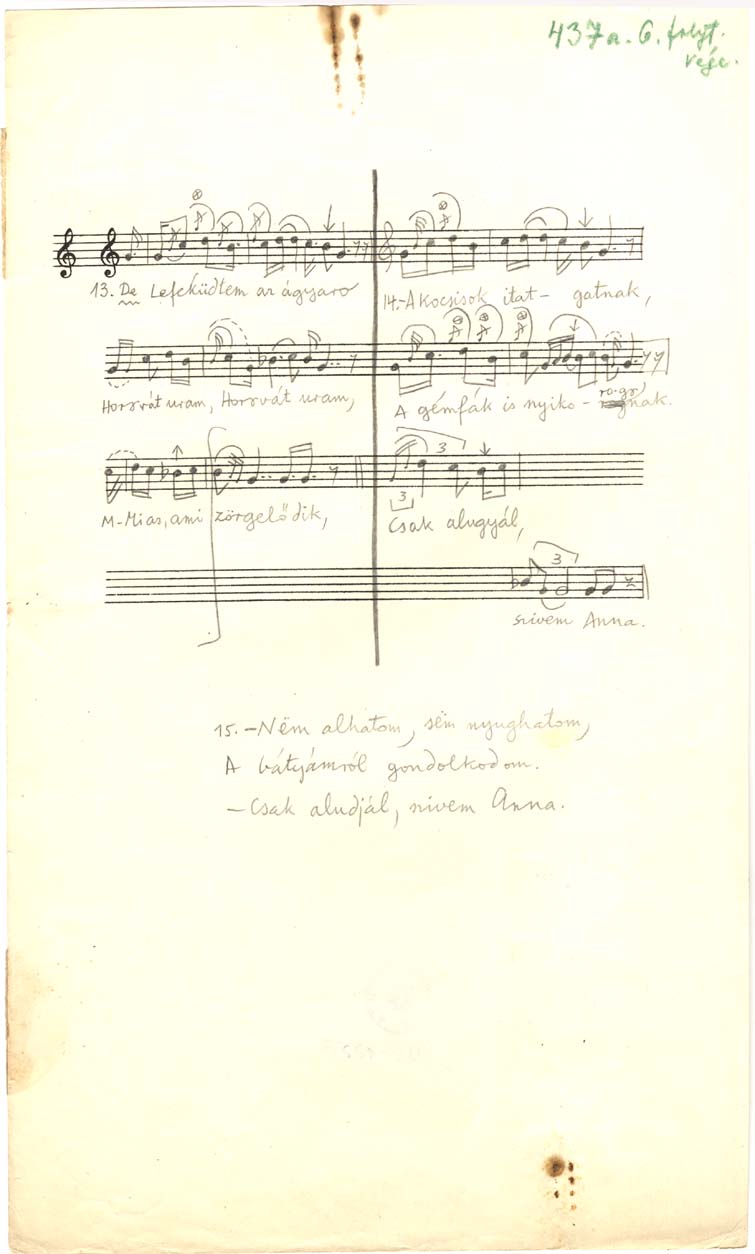 437a. 6. folyt.
vége.
13. De Lefeküdtem az ágyaro
Horvát uram, Horvát uram,
M-Mi as, ami zörgelődik,
14. - A kocsisok itat - gatnak,
A gémfák is nyiko - rogynak.
3
3
Csak alugyál,
3
szivem Anna.
15. - Nëm alhatom, sëm nyughatom,
A bátyámról gondolkodom.
- Csak aludjál, szivem Anna.